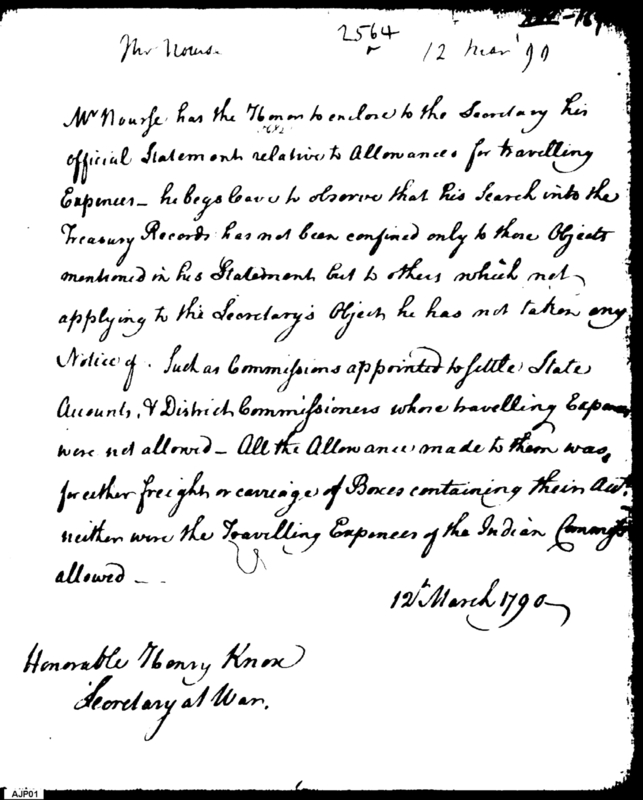 2564
Mr Nourse
12 Mar' 90
Mr Nourse has the Honor to enclose to the Secretary his
official Statement relative to Allowances for travelling
Expences – he begs leave to observe that his Search into the
Treasury Records has not been confined only to those Objects
mentioned in his Statement but to others which not
applying to the Secretary's Object he has not taken any
Notice of. Such as Commissions appointed to settle State
Accounts, & District Commissioners whose travelling Expences
were not allowed – All the Allowance made to them was,
for either freight or carriage of Boxes containing their Acts.
neither were the Travelling Expences of the Indian Commrs
allowed –
12th March 1790
Honorable Henry Knox
Secretary at War.
AJP01